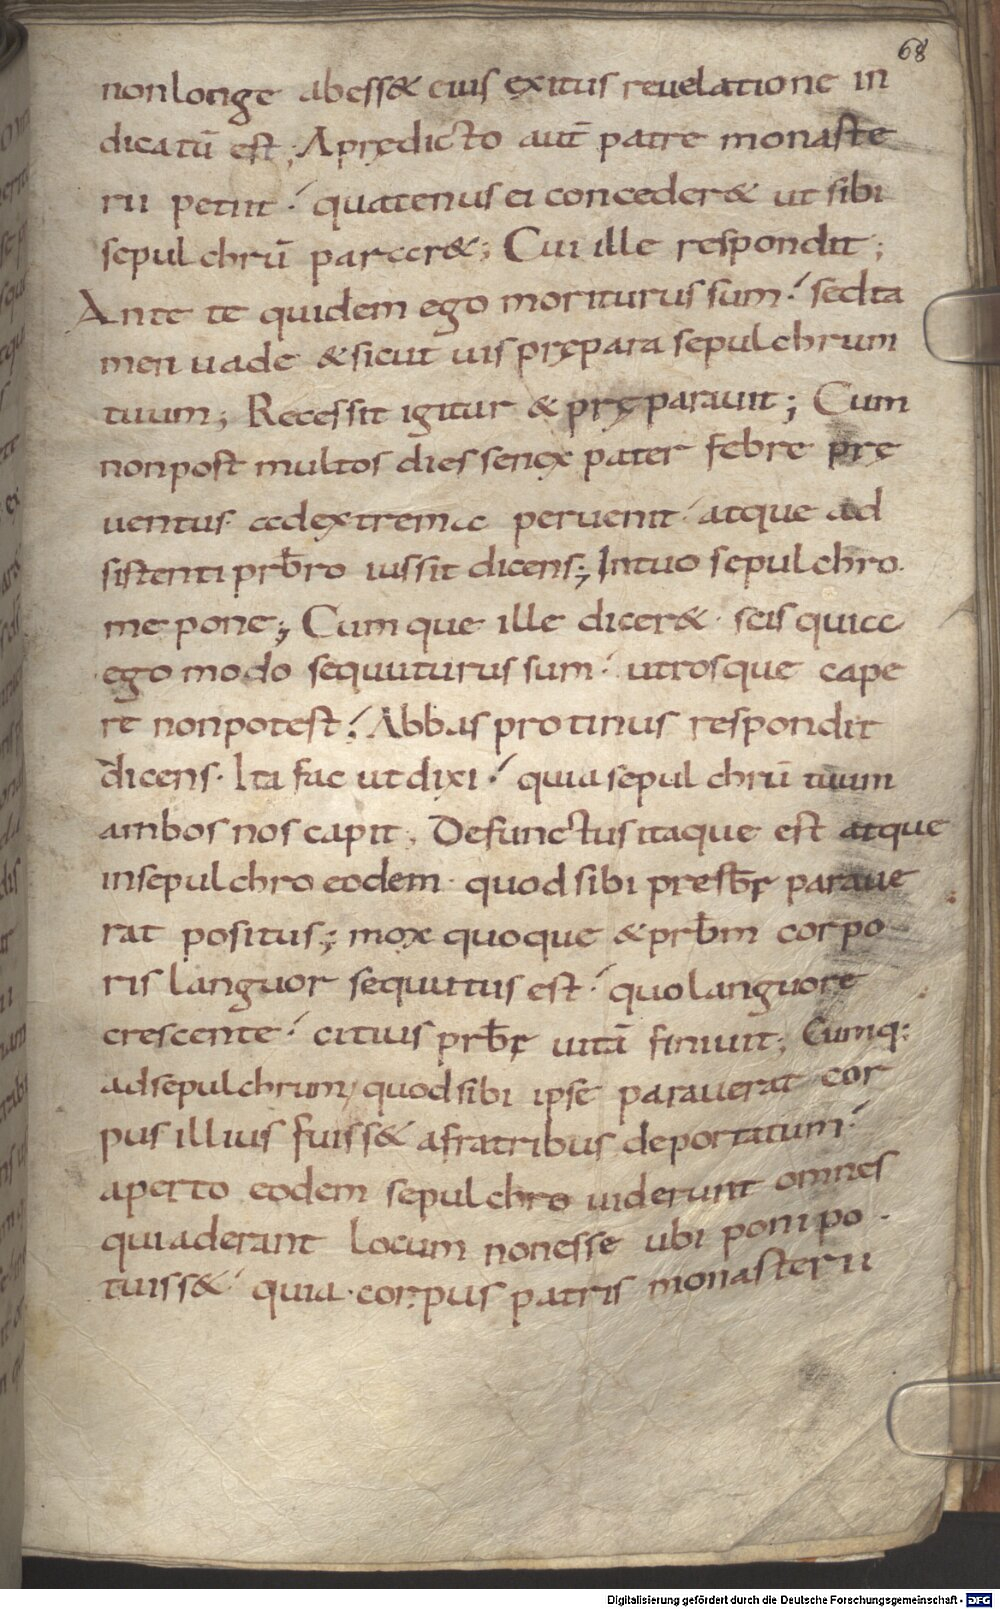 68
non longe abess& eius exitus reuelatione in
dicatū est; A prędicto aut̄ patre monaste
rii petiit· quatenus ei conceder& ut sibi
sepulchrū parar&; Cui ille respondit;
Ante te quidem ego moriturus sum· sed ta
men uade & sicut uis pręparа sepulchrum
tuum; Recessit igitur & pręparauit; Cum
non post multos dies senex pater febre prę
uentus· ad extrema peruenit· atque ad
sistenti prb̄ro iussit dicens; In tuo sepulchro
me pone; Cumque ille dicer&· scis quia
ego modo sequuturus sum· utrosque cape
re non potest· Abbas protinus respondit
dicens· Ita fac ut dixi· quia sepulchrū tuum
ambos nos capit; Defunctus itaque est atque
in sepulchro eodem· quod sibi presb̄r paraue
rat positus; mox quoque & prb̄m corpo
ris languor sequutus est· quo languore
crescente· citius prb̄r uitā finiuit; Cumq:
ad sepulchrum, quod sibi ipse parauerat cor
pus illius fuiss& a fratribus deportatum·
aperto eodem sepulchro uiderunt omnes
qui aderant locum non esse ubi poni po
tuiss&· quia· corpus patris monasterii
Digitalisierung gefördert durch die Deutsche Forschungsgemeinschaft - DFG